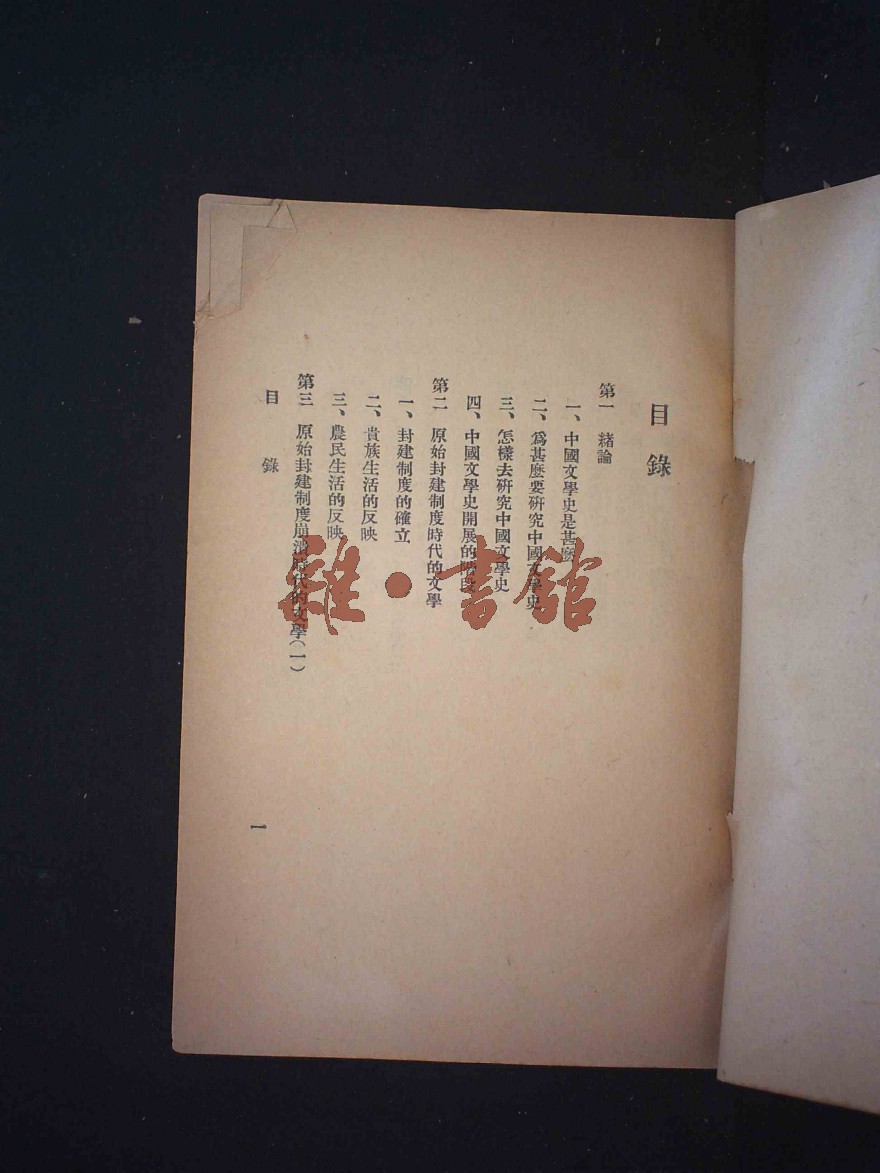 目錄
第一 緒論
一、中國文學史是甚麽
二、爲甚麽要研究中國文學史
三、怎樣去研究中國文學史
四、中國文學史開展的階段
第二 原始封建制度時代的文學
一、封建制度的確立
二、貴族生活的反映
三、農民生活的反映
第三 原始封建制度崩潰時代的文學(一)
目錄
一
雜·書館